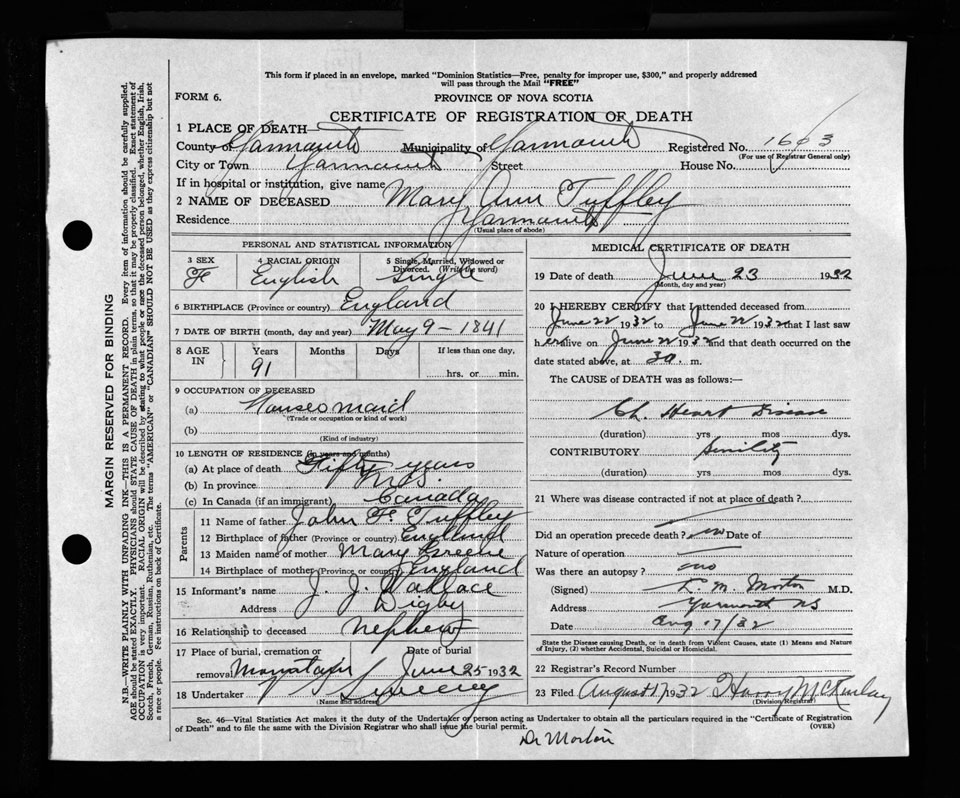 This form if placed in an envelope, marked "Dominion Statistics—Free, penalty for improper use, $300," and properly addressed
will pass through the Mail "FREE"
FORM 6.
PROVINCE OF NOVA SCOTIA
CERTIFICATE OF REGISTRATION OF DEATH
1 PLACE OF DEATH—
County of Yarmouth Municipality of Yarmouth Registered No. 1663
(For use of Registrar General only)
City or Town Yarmouth Street House No.
If in hospital or institution, give name
2 NAME OF DECEASED Mary Ann Tuffley
Residence Yarmouth
(Usual place of abode)
PERSONAL AND STATISTICAL INFORMATION
3 SEX 4 RACIAL ORIGIN 5 Single, Married, Widowed or
Divorced. (Write the word)
F English Single
6 BIRTHPLACE (Province or country) England
7 DATE OF BIRTH (month, day and year) May 9 - 1841
8 AGE IN Years Months Days If less than one day,
91 hrs. or min.
9 OCCUPATION OF DECEASED
(a) House maid
(Trade or occupation or kind of work)
(b)
(Kind of industry)
10 LENGTH OF RESIDENCE (in years and months)
(a) At place of death Fifty years
(b) In province
(c) In Canada (if an immigrant) Canada
Parents
11 Name of father John F. Tuffley
12 Birthplace of father (Province or country) England
13 Maiden name of mother Mary Greene
14 Birthplace of mother (Province or country) England
15 Informant's name J. J. Wallace
Address Digby
16 Relationship to deceased Nephew
17 Place of burial, cremation or Date of burial
removal June 25 1932
18 Undertaker Sweeny
(Name and address)
MEDICAL CERTIFICATE OF DEATH
19 Date of death June 23 1932
(Month, day and year)
20 I HEREBY CERTIFY that I attended deceased from
June 22 1932 to June 22 1932 that I last saw
her alive on June 22 1932 and that death occurred on the
date stated above, at 30. m.
The CAUSE of DEATH was as follows:—
Ch. Heart Disease
(duration) yrs mos dys.
CONTRIBUTORY Senility
(duration) yrs mos dys.
21 Where was disease contracted if not at place of death?
Did an operation precede death? no Date of
Nature of operation
Was there an autopsy? no
(Signed) L. M. Morton M.D.
Address Yarmouth NS
Date Aug 17/32
State the Disease causing Death, or in death from Violent Causes, state (1) Means and Nature
of Injury, (2) whether Accidental, Suicidal or Homicidal.
22 Registrar's Record Number
23 Filed August 17 1932 Harry McKinlay
(Division Registrar)
Sec. 46—Vital Statistics Act makes it the duty of the Undertaker or person acting as Undertaker to obtain all the particulars required in the "Certificate of Registration
of Death" and to file the same with the Division Registrar who shall issue the burial permit. (OVER)
Dr Morton
MARGIN RESERVED FOR BINDING
N.B.—WRITE PLAINLY WITH UNFADING INK—THIS IS A PERMANENT RECORD. Every item of information should be carefully supplied.
AGE should be stated EXACTLY. PHYSICIANS should STATE CAUSE OF DEATH in plain terms, so that it may be properly classified. Exact statement of
OCCUPATION is very important. RACIAL ORIGIN will be described by stating to what people or race the deceased person belonged, whether English, Irish,
Scotch, French, German, Russian, Ruthenian, etc. The terms "AMERICAN" or "CANADIAN" SHOULD NOT BE USED as they express citizenship but not
a race or people. See instructions on back of Certificate.